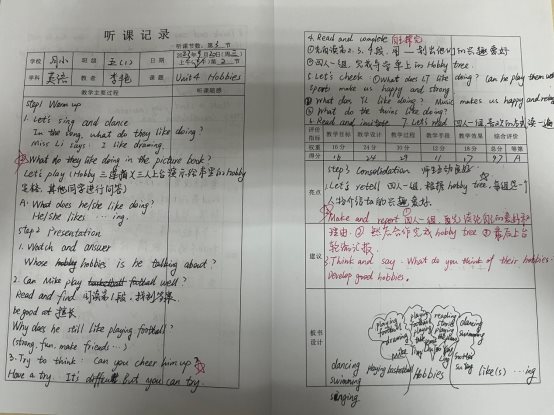 听课记录
听课节数：第 3 节
学校 吴小 班级 五(1) 日期 2023年9月20日(周三) 上午第2节
学科 英语 教者 李艳 课题 Unit4 Hobbies
教学主要过程 听课随感
Step1 Warm up
1. Let's sing and dance
In the song, what do they like doing?
Miss Li says: I like drawing.
What do they like doing in the picture book?
Let's play (Hobby 三人上台演示绘本里的hobby
其他同学进行问答)
A. What does he/she like doing?
He/She likes ...ing.
Step2 Presentation
1. Watch and answer
Whose hobbies is he talking about?
2. Can Mike play football well?
Read and find 阅读第1段，找到答案
be good at 擅长
Why does he still like playing football?
(strong, fun, make friends...)
3. Try to think: Can you cheer him up?
Have a try. It's difficult But you can try.
4. Read and complete
①先阅读第2, 3, 4段，用 — 划出他们的兴趣爱好
②四人一组，完成导学单上的 Hobby tree.
5. Let's check ①What does LT like doing? Can he play them well
Sports make us happy and strong
②What does YL like doing? Music makes us happy and relaxed
③What do the twins like doing?
6. Read and imitate 7. Let's read 四人一组
评价指标 教学目标 教学设计 教学过程 教学手段 教学效果 综合评价
权重 16分 24分 30分 12分 18分 总分 等第
得分 16 24 29 11 17 97 A
亮点
Step3 Consolidation
1. Let's retell 四人一组，根据 hobby tree，每组选一个
人物介绍他的兴趣爱好.
建议
2. Make and report ①四人一组，首先谈论自己的爱好和
理由，② 然后合作完成 hobby tree ③ 最后上台
轮流汇报
3. Think and say. What do you think of their hobbies.
Develop good hobbies.
板书设计
playing football
drawing
Mike
playing basketball
playing football
playing table tennis
Liu Tao
reading stories
playing the piano
Yang Ling
dancing
swimming
Su Hai
Su Yang
dancing
swimming
singing
Hobbies
like(s) ...ing